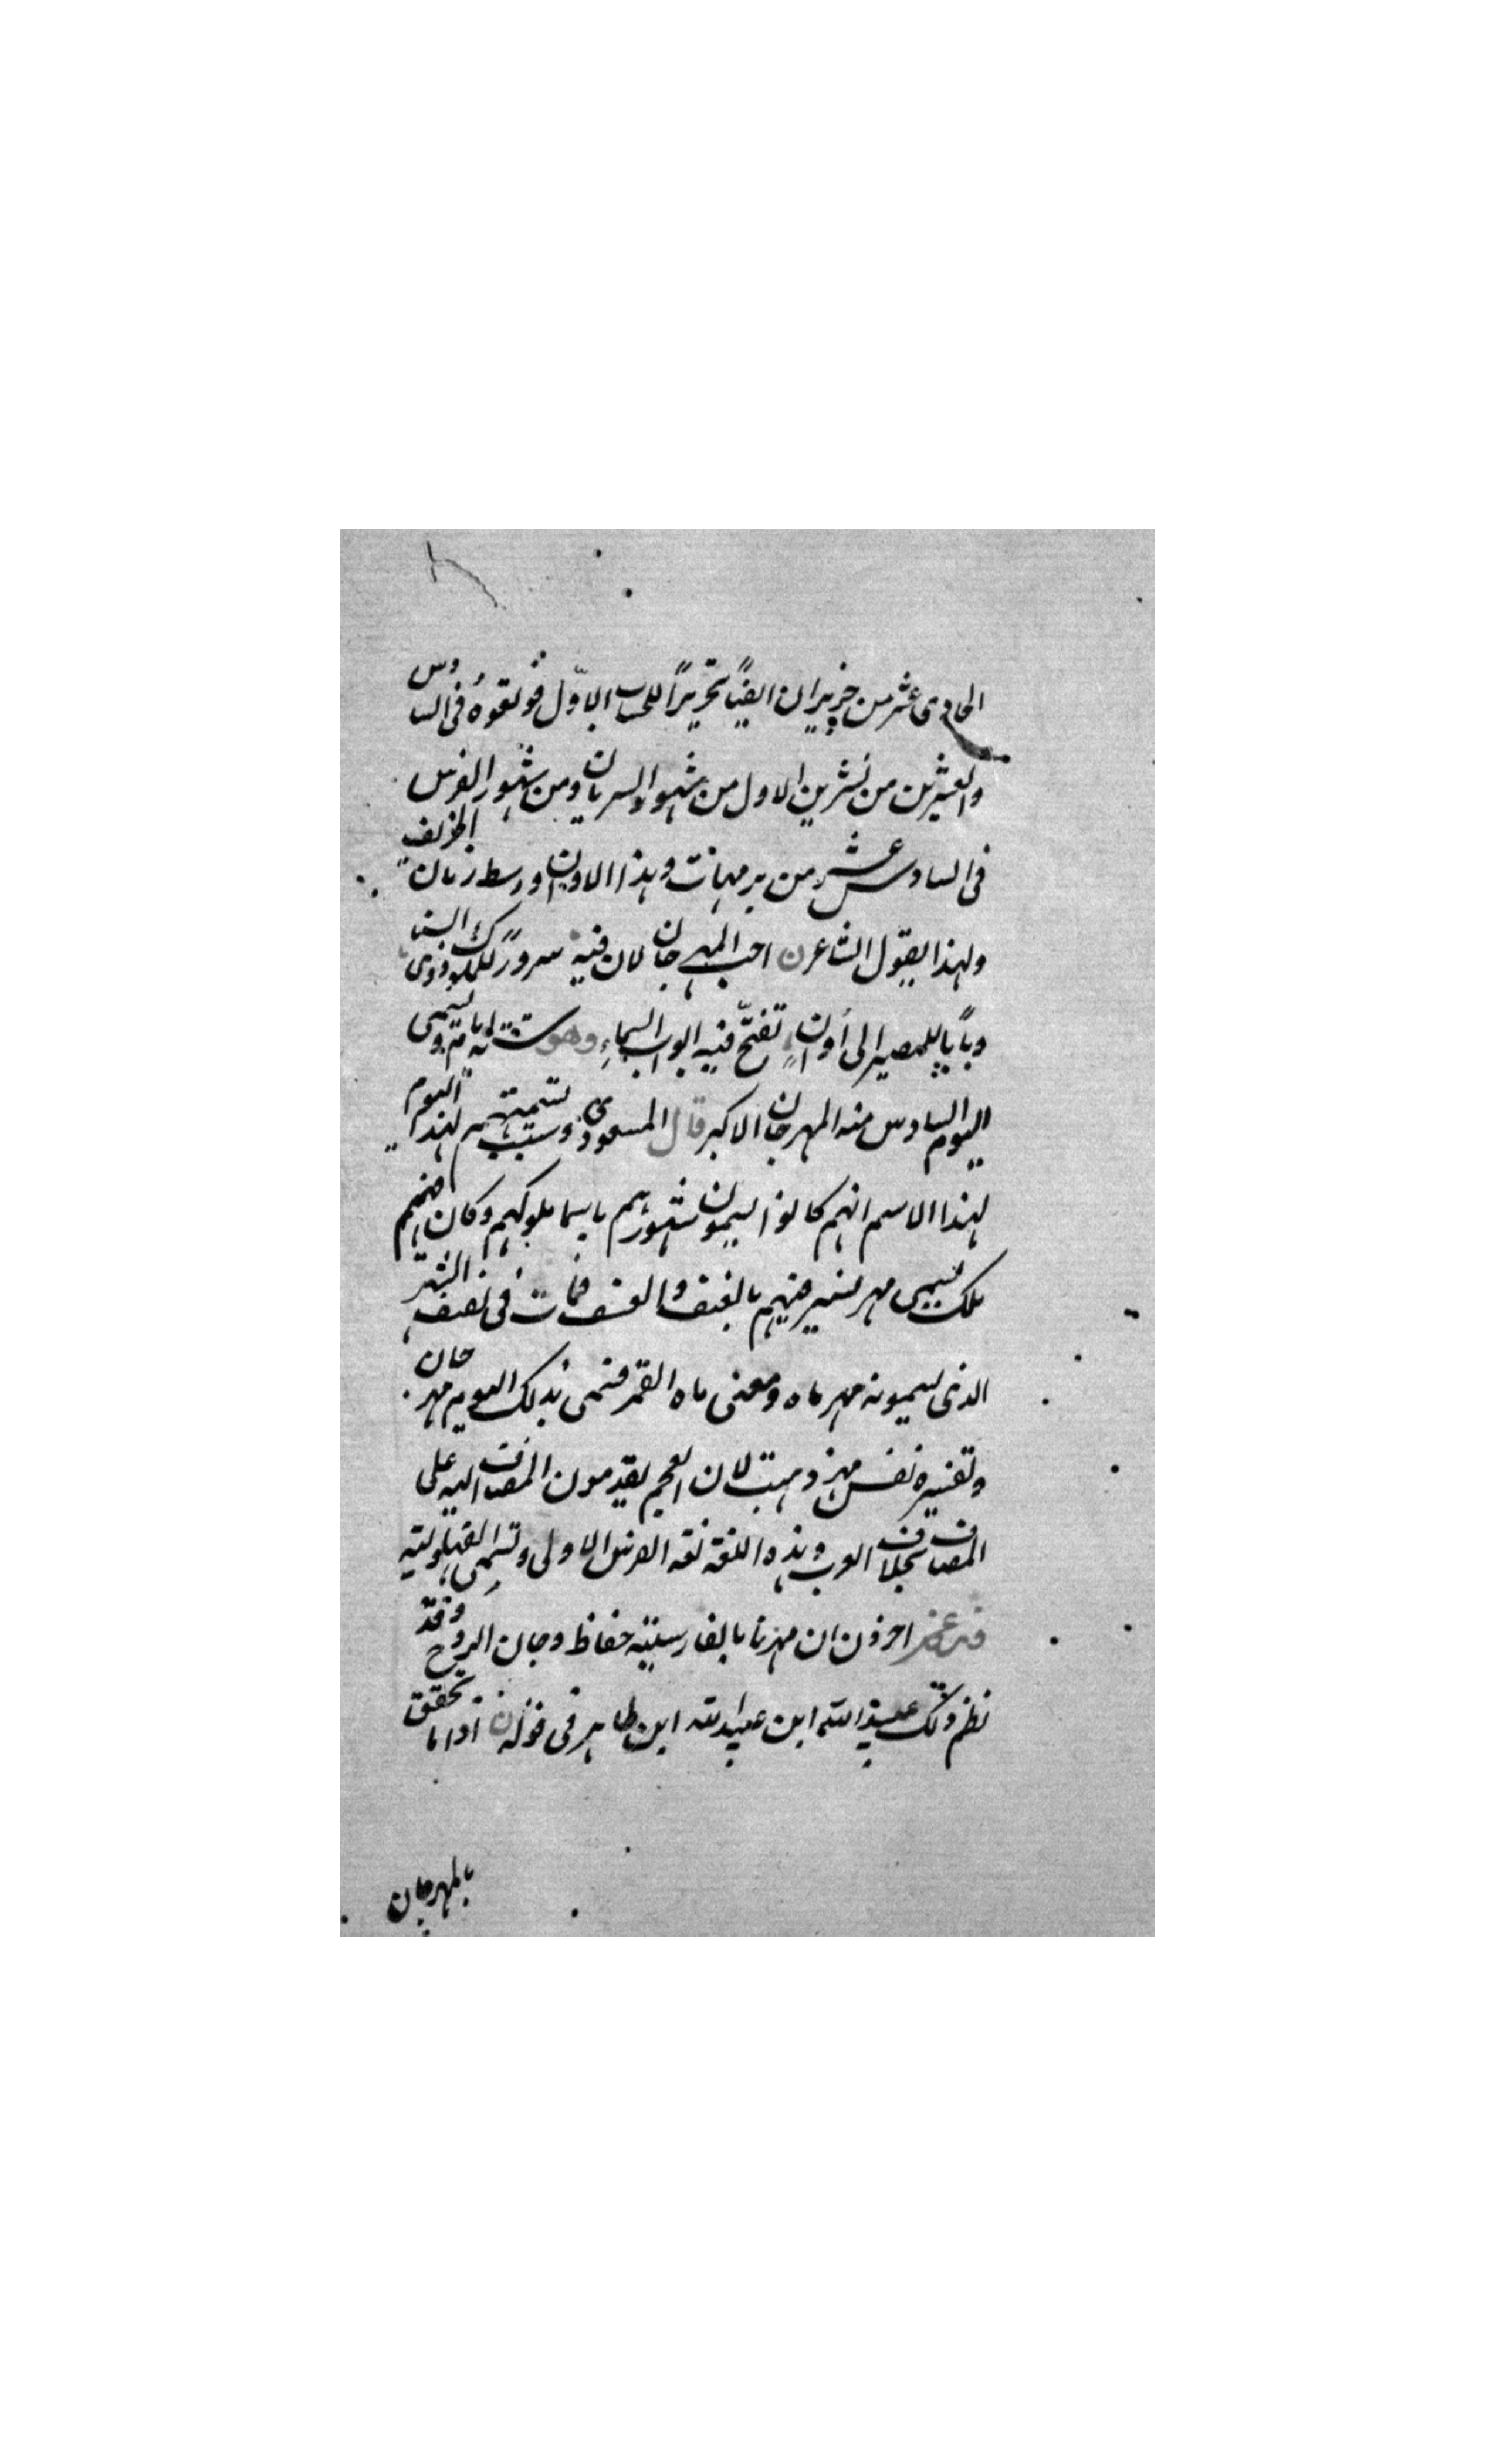 الحادى عشر من حزيران ايضًا تحريرًا للحساب الاوّل فوقعوه فى السادس
والعشرين من تشرين الاول من شهور السريان ومن شهور الفرس
فى السادس عشر من برمهات وهذا الاوان وسط زمان الخريف
ولهذا يقول الشاعر ن احب المهرجان لان فيه سرورًا للملوك ذوى السنا
وبابًا للمصير الى أوان تفتّح فيه ابواب السماء وهو ستة ايام ويسمى
اليوم السادس منه المهرجان الاكبر قال المسعودى وسبب تسميتهم لهذا اليوم
لهذا الاسم انهم كانوا يسمون شهورهم باسما ملوكهم وكان منهم
ملك يسمى مهر يسير فيهم بالعنف والعسف فمات فى نصف الشهر
الذى يسمونه مهرماه ومعنى ماه القمر فسمى بذلك اليوم مهرجان
وتفسيره نفس مهر ذهبت لان العجم يقدمون المضاف اليه على
المضاف بخلاف العرب وهذه اللغة لغة الفرس الاولى وتسمى الفهلوية
اخرون ان مهر نا بالفارسية حفاظ وجان الروح وقد
نظم ذلك عبد الله ابن عبد الله ابن طاهر فى قوله ن اذا ما تحقق
بالمهرجان